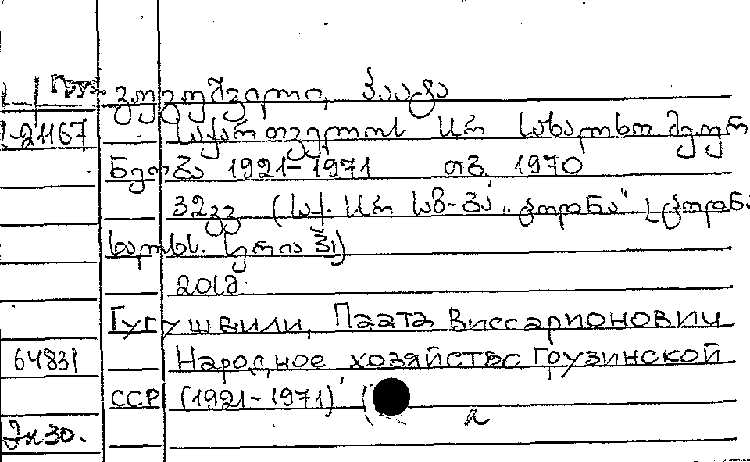 გუგუშვილი, პაატა
21167 საქართველოს სსრ სახალხო მეურ
ნეობა 1921-1971 თბ. 1970
32გვ (საქ. სსრ საზ-ბა „ცოდნა“
სერია
2018
Гугушвили, Паата Виссарионович
64831 Народное хозяйство Грузинской
ССР (1921-1971)
Эк 30.